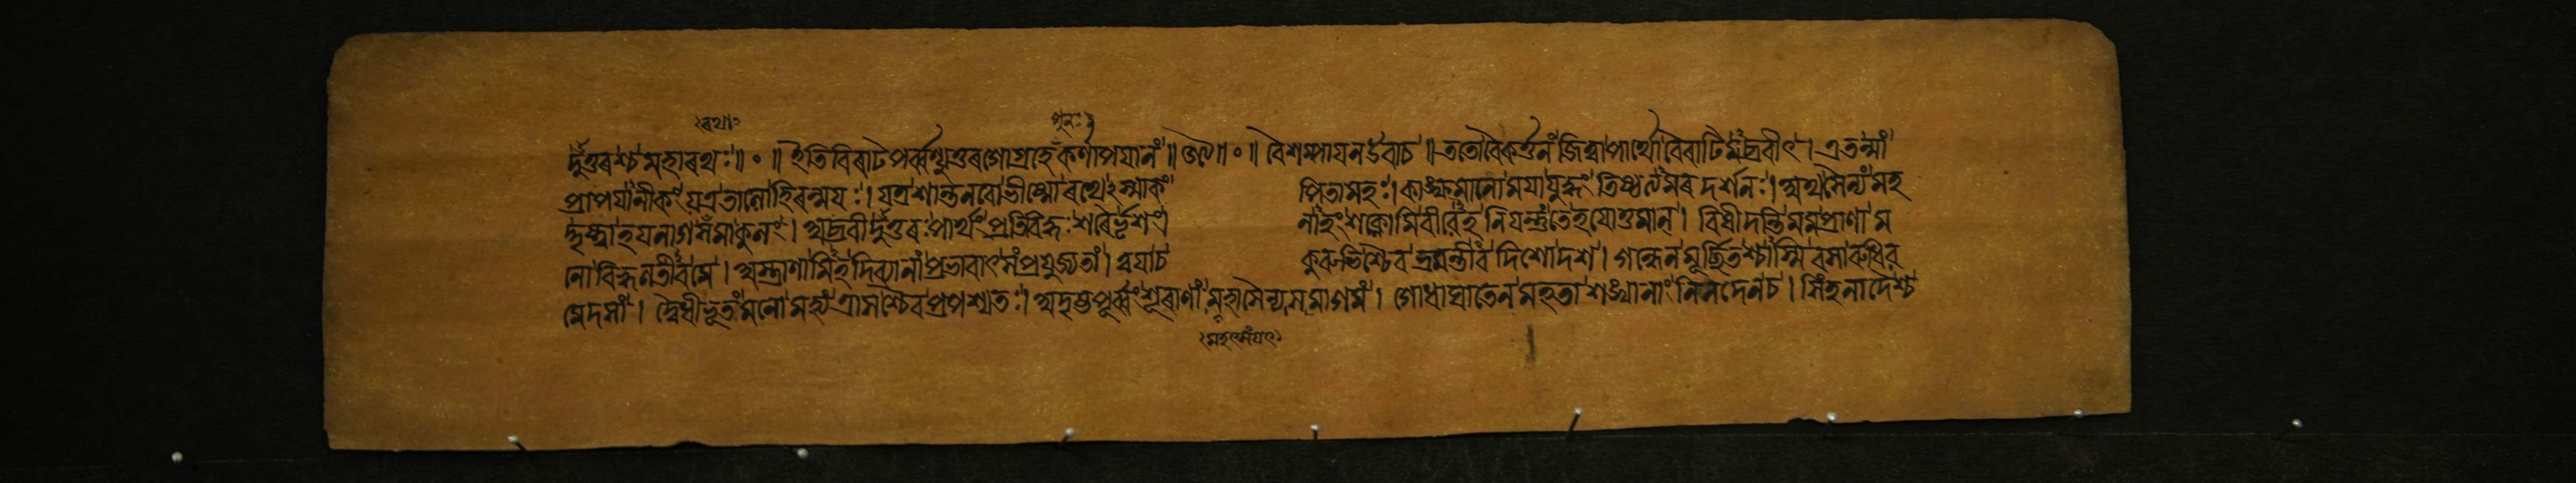 ৰথাঃ
পুনঃ
র্দুত্তৰশ্চ মহাৰথঃ॥ ॰ ॥ ইতি বিৰাটপর্ব্বণ্যুত্তৰগোগ্ৰাহে কর্ণাপযানং ॥ ॰ ॥ বৈশম্পাযন উবাচ ॥ ততো বৈকর্ত্তনং জিত্বা পার্থো বৈৰাটিমব্ৰবীৎ । এতন্মাং
প্ৰাপযানীকং যত্ৰ তালো হিৰন্মযঃ । যত্ৰ শান্তনবো ভীষ্মো ৰথেঽস্মাকং পিতামহঃ । কাঙ্ক্ষমাণো মযা যুদ্ধং তিষ্ঠত্যমৰদর্শনঃ । অথ সৈন্যং মহ
দ্দৃষ্ট্বা হযনাগসমাকুলং । অব্ৰবীদুত্তৰঃ পার্থং প্ৰতিবিদ্ধঃ শৰৈর্ভৃশং । নাহং শক্নোমি বীৰেহ নিযন্তুং তে হযোত্তমান্ । বিষীদন্তি মম প্ৰাণা ম
নো বিহ্বলতীব মে । অস্ত্ৰাণামিহ দিব্যানাং প্ৰভাবাৎ সংপ্ৰযুজ্যতাং । ত্বযা চ কুৰুভিশ্চৈব দ্ৰবন্তীব দিশো দশ । গন্ধেন মূর্চ্ছিতশ্চাস্মি বসাৰুধিৰ
মেদসাং । দ্বৈধীভূতং মনো মহ্যং ত্ৰাসশ্চৈব প্ৰপশ্যতঃ । অদৃষ্টপূর্ব্বং শূৰাণাং মহাসৈন্যসমাগমং । গোধাঘাতেন মহতা শঙ্খানাং নিনদেন চ । সিংহনাদৈশ্চ
মহৎসংযৎ